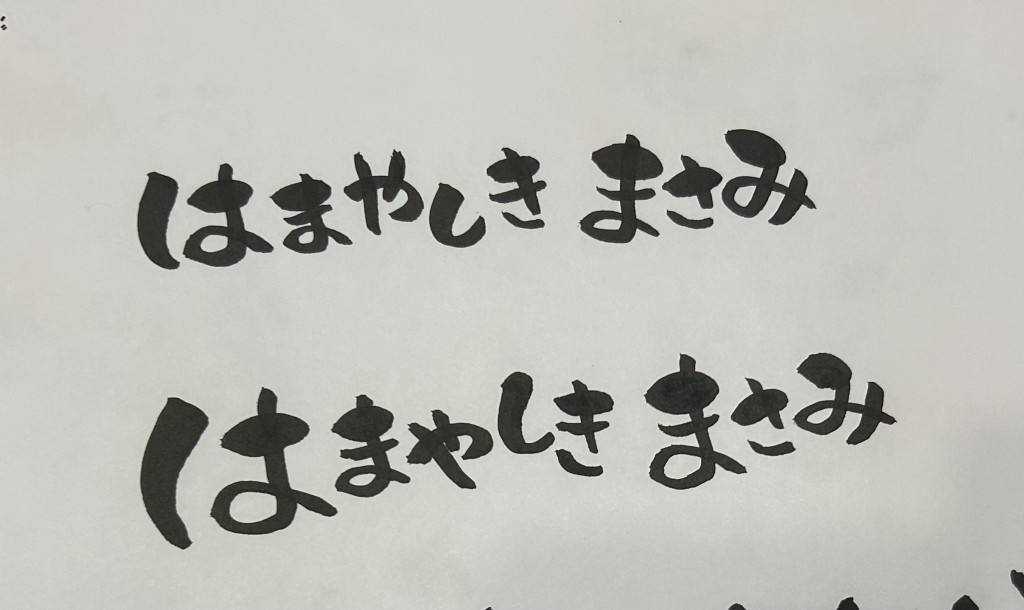 はまやしき まさみ
はまやしき まさみ